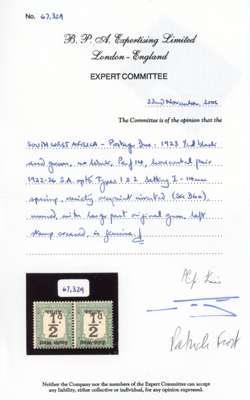 No. 67,329
B. P. A. Expertising Limited
London - England
EXPERT COMMITTEE
22nd November, 2005
The Committee is of the opinion that the
SOUTH WEST AFRICA - Postage Due: 1923 ½d black
and green, no wmk. Perf 14, horizontal pair
1922-26 S.A. opts Types 1 & 2. Setting I - 14mm
spacing, variety overprint inverted (SG D6a),
unused, with large part original gum, left
stamp creased, is genuine.
67,329
½D
½D
Patrick Frost
Neither the Company nor the members of the Expert Committee can accept
any liability, either collective or individual, for any opinion expressed.